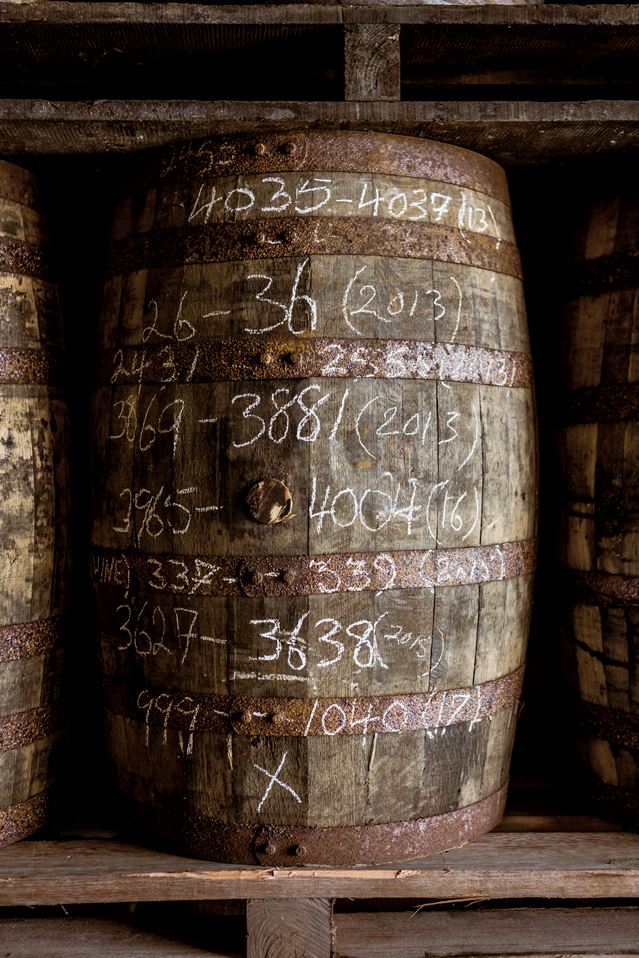 4035-4037(13)
26-36 (2013)
2431
3869-3881(2013)
3965-4004(16)
337--339 (2015)
3627-3638(2015)
999--1040(17)
X